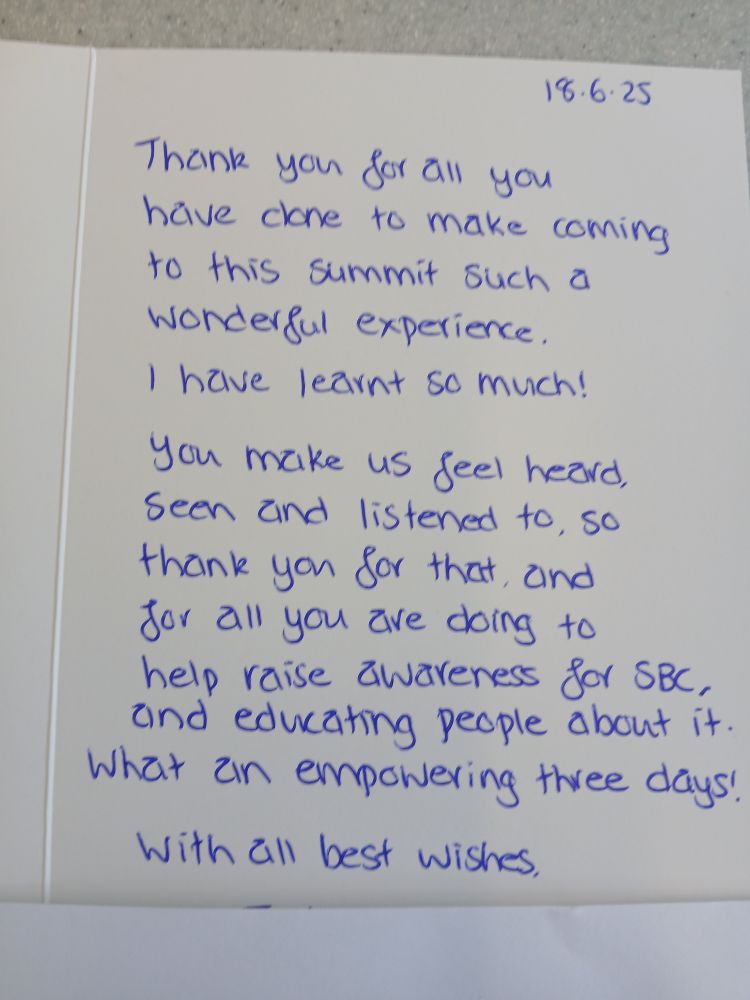 18.6.25
Thank you for all you
have done to make coming
to this summit such a
wonderful experience.
I have learnt so much!
You make us feel heard,
seen and listened to, so
thank you for that, and
for all you are doing to
help raise awareness for SBC,
and educating people about it.
What an empowering three days!
With all best wishes,